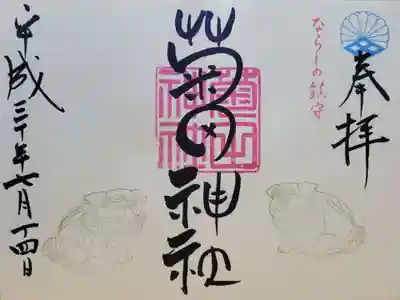 奉拝
ならしの鎮守
菊田神社
菊田
神社
平成三十年七月十四日